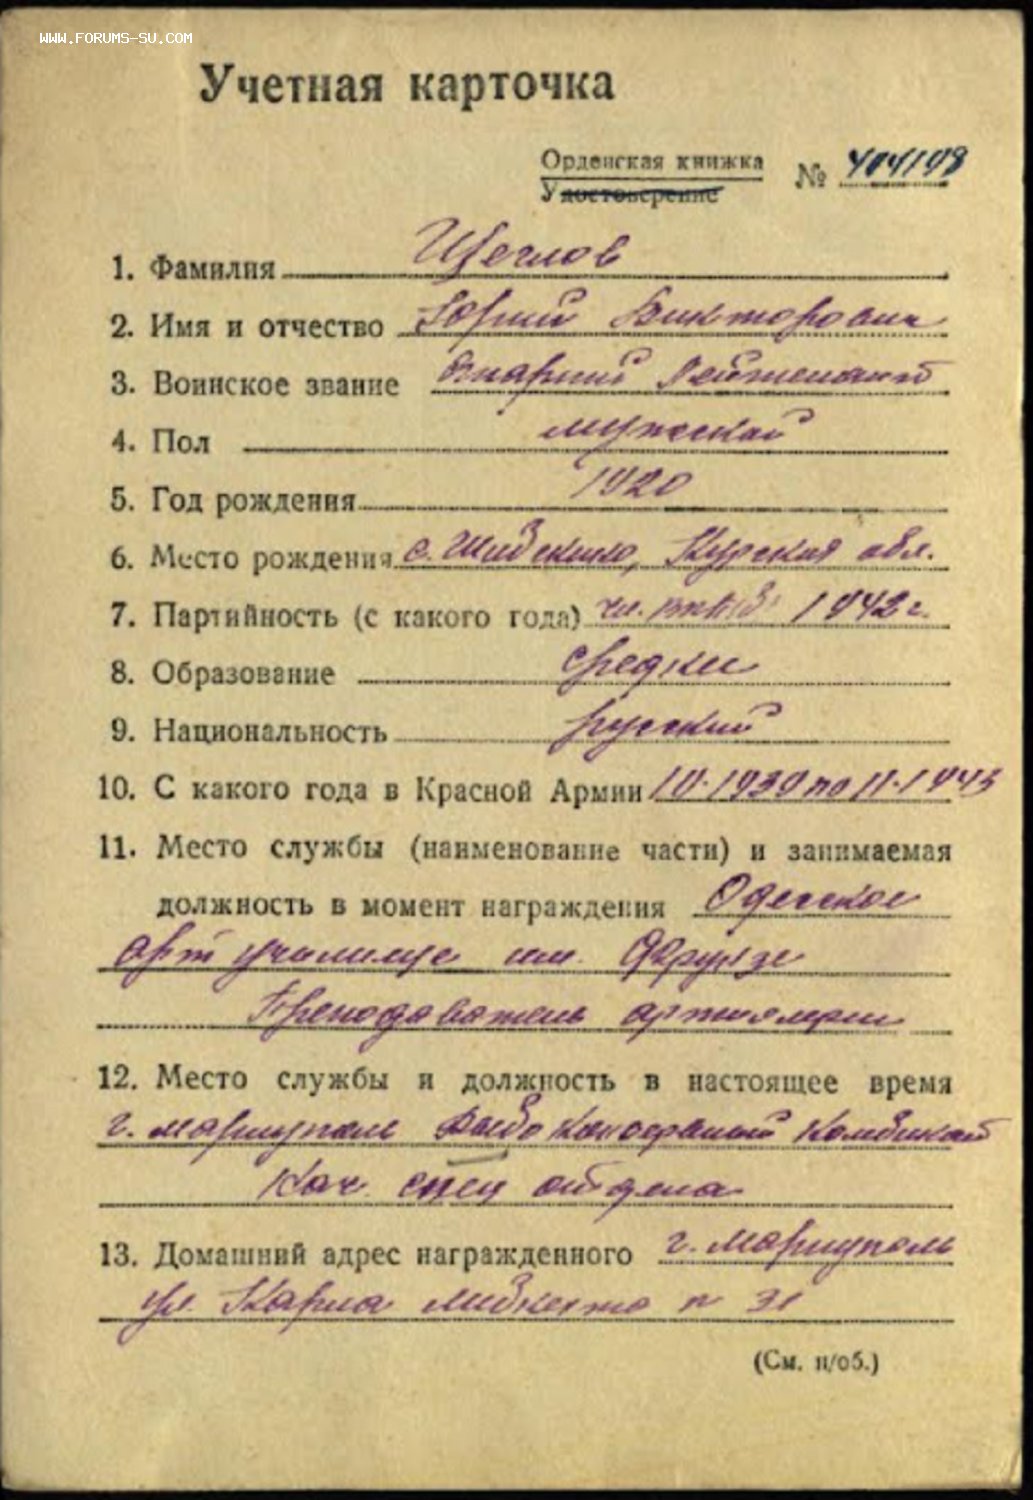 WWW.FORUMS-SU.COM
Учетная карточка
Орденская книжка № 404198
Удостоверение
1. Фамилия Щеглов
2. Имя и отчество Юрий Викторович
3. Воинское звание Старший Лейтенант
4. Пол мужской
5. Год рождения 1920
6. Место рождения с. Шебекино, Курская обл.
7. Партийность (с какого года) чл. ВКП(б) 1942 г.
8. Образование средн
9. Национальность русский
10. С какого года в Красной Армии 1939 по
11. Место службы (наименование части) и занимаемая
должность в момент награждения Одесское
арт училище им. Фрунзе
Преподаватель артиллерии
12. Место службы и должность в настоящее время
г. Мариуполь Консервный Комбинат
Нач. спец отдела
13. Домашний адрес награжденного г. Мариуполь
ул. Карла Либкнехта 31
(См. н/об.)